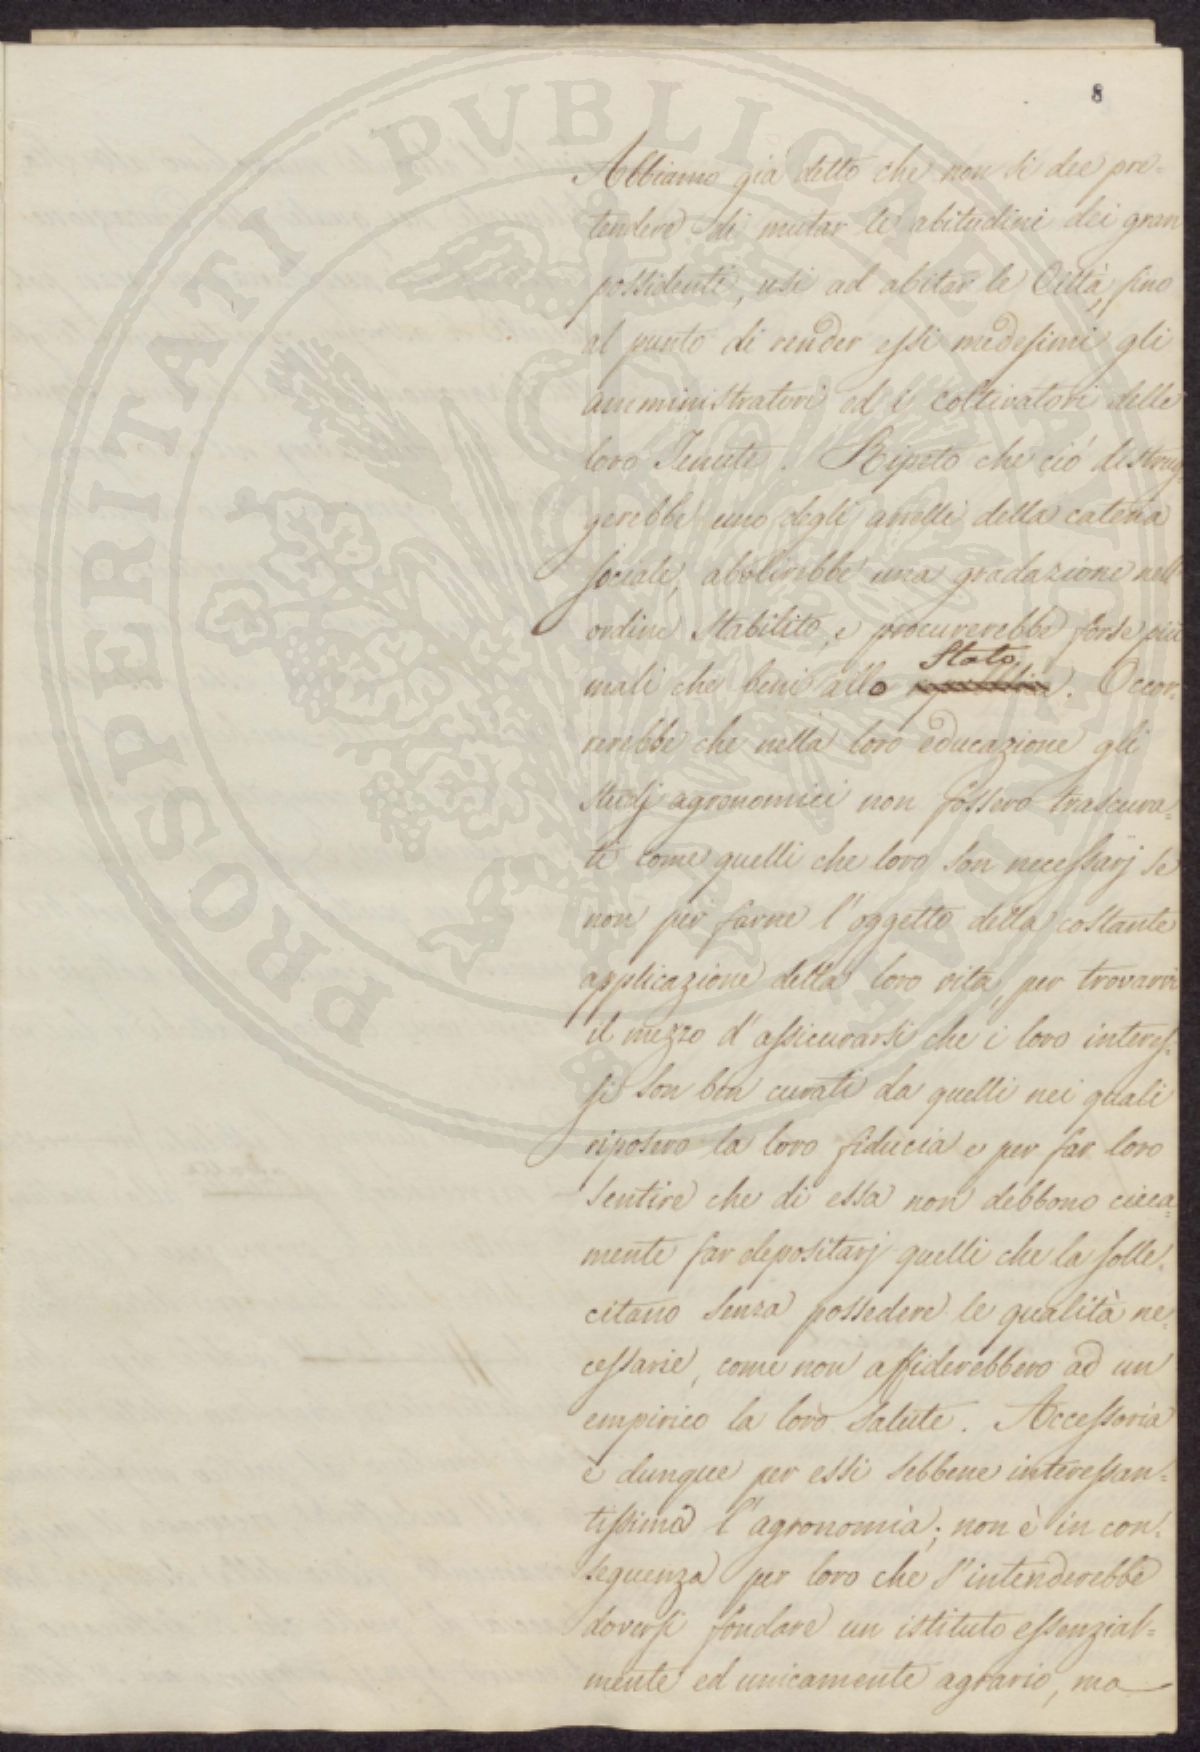 8
Abbiamo già detto che non si dee pre=
tendere di mutar le abitudini dei gran
possidenti, usi ad abitar le Città, fino
al punto di render essi medesimi gli
amministratori ed i coltivatori delle
loro Tenute. Ripeto che ciò distrug
gerebbe uno degli anelli della catena
sociale, abolirebbe una gradazione nell
ordine stabilito, e procurerebbe forse più
Stato
mali che beni allo . Occor=
rerebbe che nella loro educazione gli
studj agronomici non fossero trascura=
ti come quelli che loro son necessarj se
non per farne l'oggetto della costante
applicazione della loro vita, per trovarvi
il mezzo d'assicurarsi che i loro interes=
si son ben curati da quelli nei quali
riposero la loro fiducia e per far loro
sentire che di essa non debbono cieca=
mente far depositarj quelli che la solle=
citano senza possedere le qualità ne=
cessarie, come non affiderebbero ad un
empirico la loro salute. Accessoria
è dunque per essi sebbene interessan=
tissima l'agronomia; non è in con=
seguenza per loro che s'intenderebbe
doversi fondare un istituto essenzial=
mente ed unicamente agrario, ma
PROSPERITATI PUBLICAE